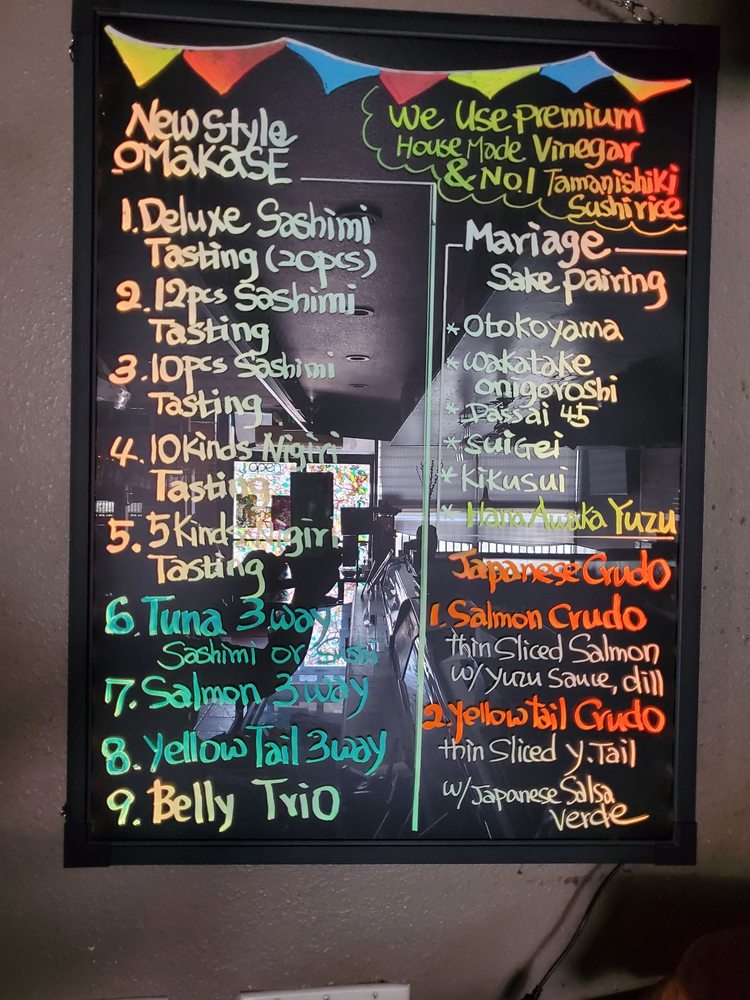 New Style
OMAKASE
1. Deluxe Sashimi
Tasting (20pcs)
2. 12pcs Sashimi
Tasting
3. 10pcs Sashimi
Tasting
4. 10Kinds Nigiri
Tasting
5. 5Kinds Nigiri
Tasting
6. Tuna 3.way
Sashimi or Sushi
7. Salmon 3way
8. Yellow Tail 3way
9. Belly Trio
We Use Premium
House Made Vinegar
& No1 Tamanishiki
Sushi rice
Mariage
Sake pairing
* Otokoyama
* Wakatake
onigoroshi
* Dassai 45
* Suigei
* Kikusui
* Hana Awaka Yuzu
Japanese Crudo
1. Salmon Crudo
thin Sliced Salmon
w/ Yuzu Sauce, dill
2. Yellow Tail Crudo
thin Sliced Y.Tail
w/ Japanese Salsa
verde
open